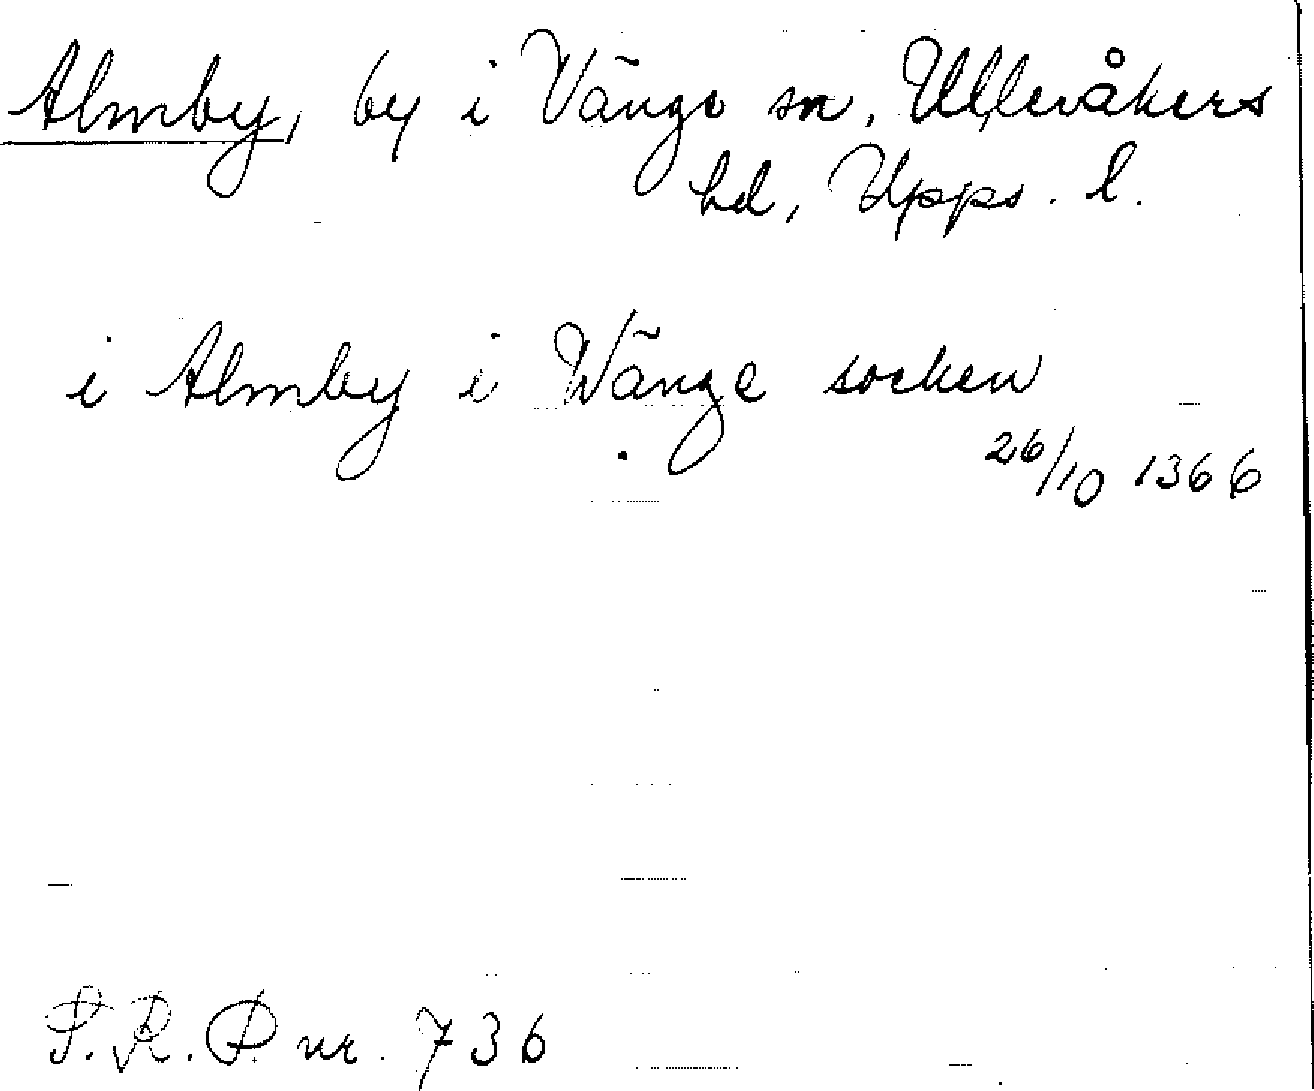 Almby, by i Vänge sn, Ulleråkers
hd, Upps. l.
i Almby i Wänge socken
26/10 1366
S.R.P. nr. 736